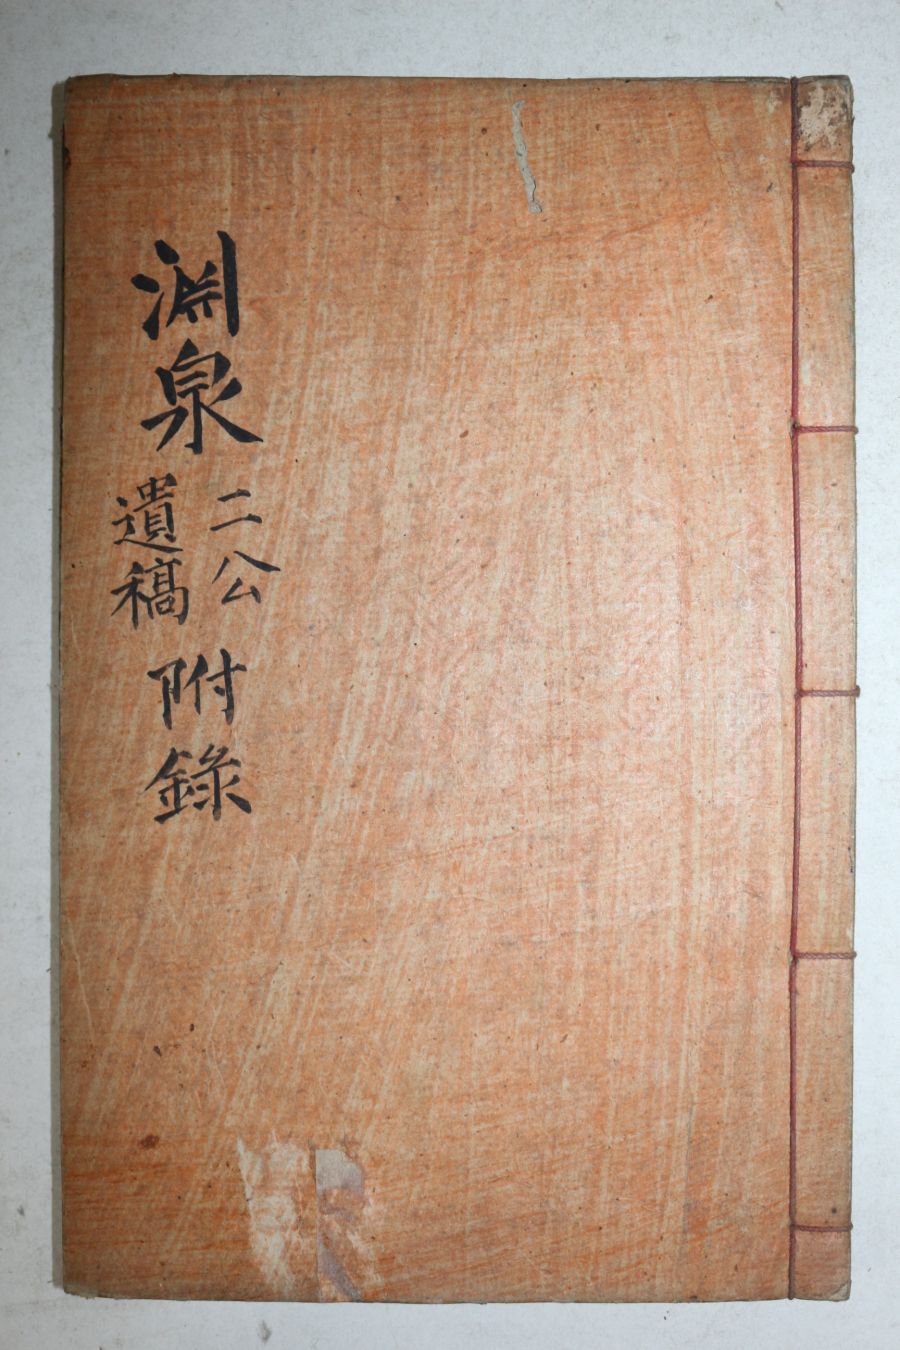 淵泉
二公
遺稿
附錄